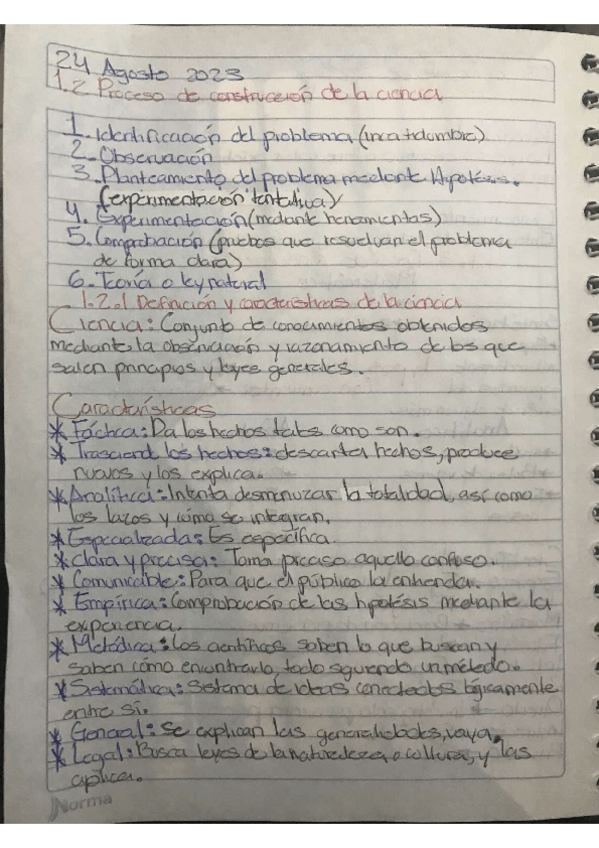 24 Agosto 2023
1.2 Proceso de construcción de la ciencia
1. Identificación del problema (incertidumbre)
2. Observación
3. Planteamiento del problema mediante Hipotésis.
(experimentación tentativa)
4. Experimentación (mediante herramientas)
5. Comprobación (pruebas que resuelvan el problema
de forma clara)
6. Teoría o ley natural
1.2.1 Definición y características de la ciencia
Ciencia: Conjunto de conocimientos obtenidos
mediante la observación y razonamiento de los que
salen principios y leyes generales.
Características
* Fáctica: Da los hechos tales como son.
* Trasciende los hechos: descarta hechos, produce
nuevos y los explica.
* Analítica: Intenta desmenuzar la totalidad, así como
los lazos y cómo se integran.
* Especializada: Es específica.
* Clara y precisa: Torna preciso aquello confuso.
* Comunicable: Para que el público la entienda.
* Empírica: Comprobación de las hipotésis mediante la
experiencia.
* Metódica: Los científicos saben lo que buscan y
saben cómo encontrarlo, todo siguiendo un método.
* Sistemática: Sistema de ideas conectadas lógicamente
entre sí.
* General: Se explican las generalidades, vaya.
* Legal: Busca leyes de la naturaleza o cultura, y las
aplica.
Norma